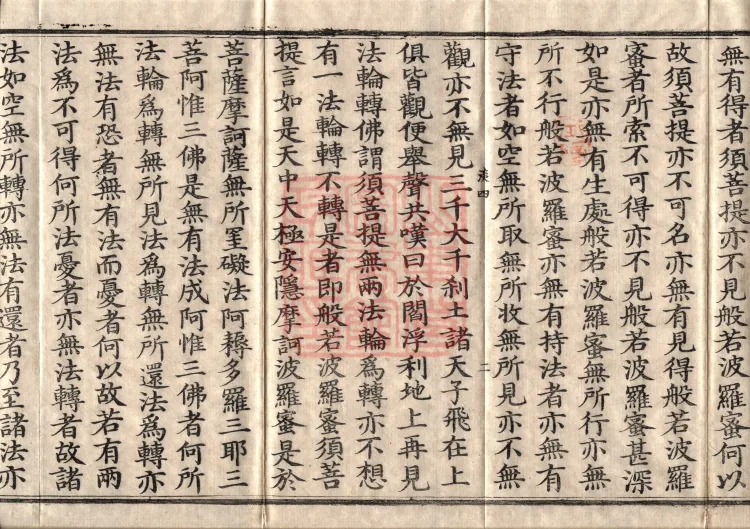 無有得者須菩提亦不見般若波羅蜜何以
故須菩提亦不可名亦無有見得般若波羅
蜜者所索不可得亦不見般若波羅蜜甚深
如是亦無有生處般若波羅蜜無所行亦無
所不行般若波羅蜜亦無有持法者亦無有
守法者如空無所取無所收無所見亦不無
觀亦不無見三千大千剎土諸天子飛在上
俱皆觀便舉聲共嘆曰於閻浮利地上再見
法輪轉佛謂須菩提無兩法輪為轉亦不想
有一法輪轉不轉是者即般若波羅蜜須菩
提言如是天中天極安隱摩訶波羅蜜是於
菩薩摩訶薩無所罣礙法阿耨多羅三耶三
菩阿惟三佛是無有法成阿惟三佛者何所
法輪為轉無所見法為轉無所還法為轉亦
無法有恐者無有法而憂者何以故若有兩
法為不可得何所法憂者亦無法轉者故諸
法如空無所轉亦無法有還者乃至諸法亦